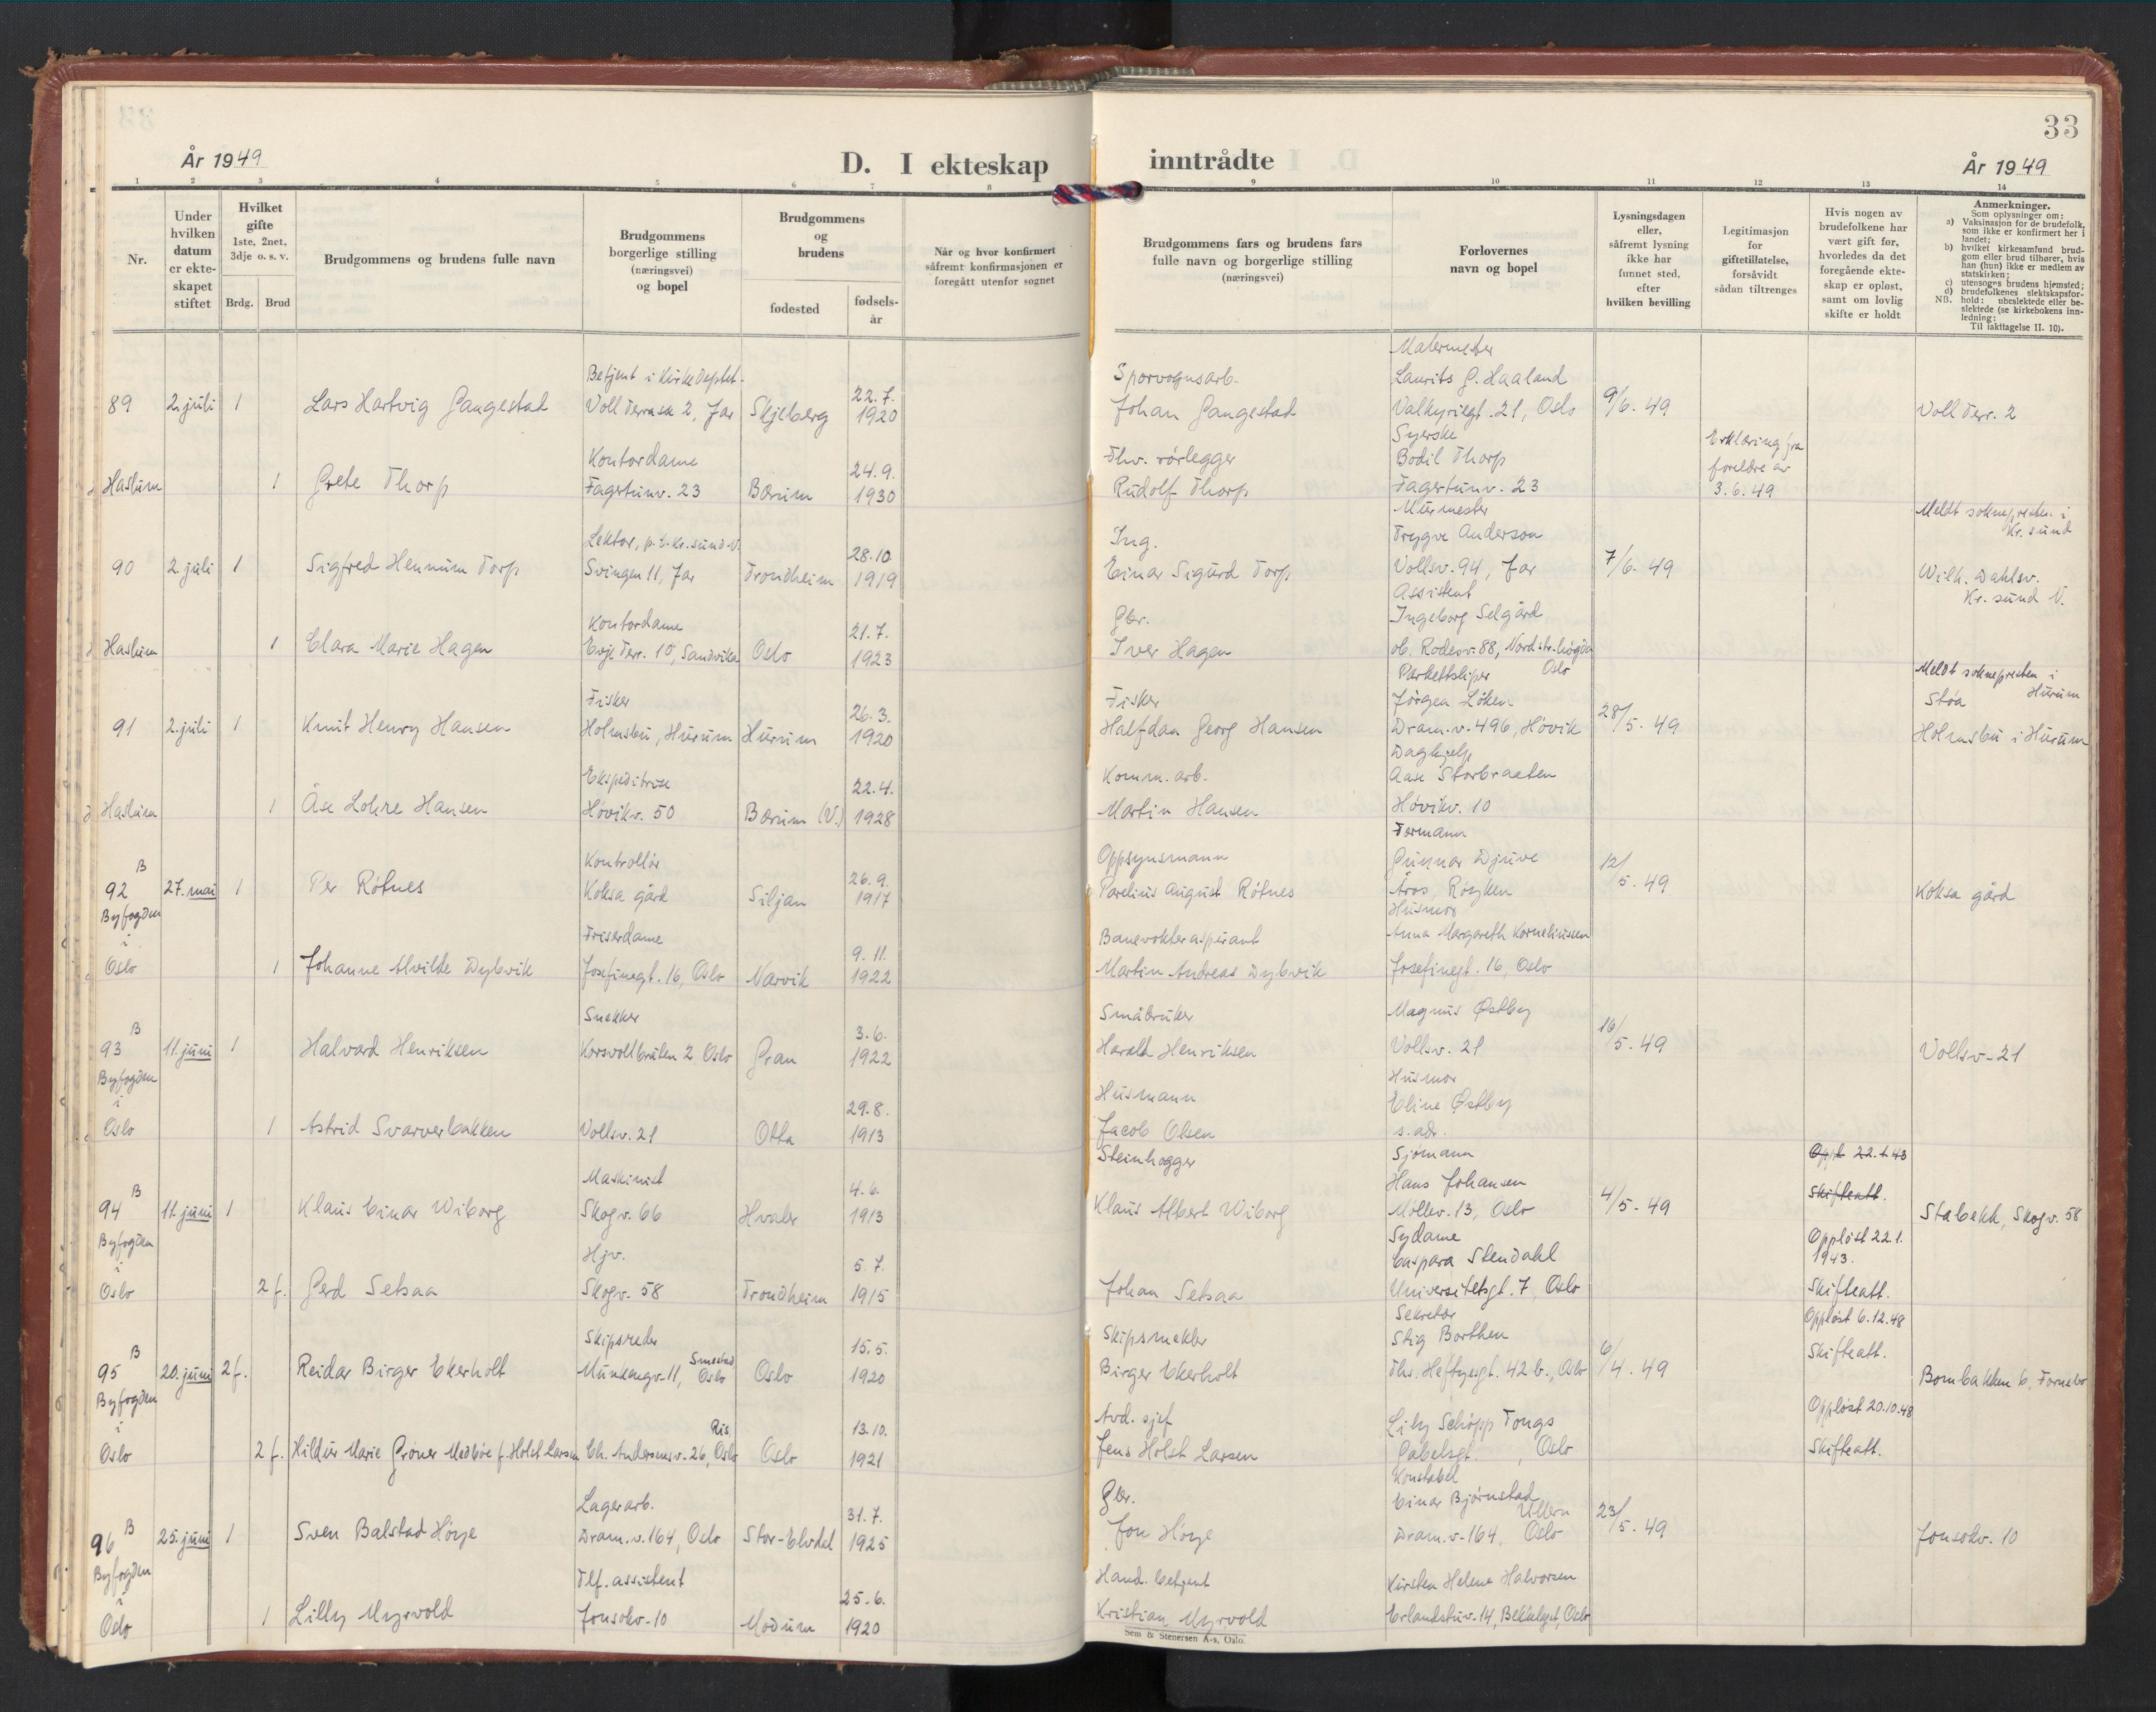 33
År 1949
D. I ekteskap
inntrådte
År 1949
1 2 3 4 5 6 7 8 9 10 11 12 13 14
Nr.
Under hvilken datum er ekteskapet stiftet
Hvilket gifte 1ste, 2net, 3dje o. s. v.
Brdg. Brud
Brudgommens og brudens fulle navn
Brudgommens borgerlige stilling (næringsvei) og bopel
Brudgommens og brudens
fødested
fødselsår
Når og hvor konfirmert såfremt konfirmasjonen er foregått utenfor sognet
Brudgommens fars og brudens fars fulle navn og borgerlige stilling (næringsvei)
Forlovernes navn og bopel
Lysningsdagen eller, såfremt lysning ikke har funnet sted, efter hvilken bevilling
Legitimasjon for giftetillatelse, forsåvidt sådan tiltrenges
Hvis nogen av brudefolkene har vært gift før, hvorledes da det foregående ekteskap er opløst, samt om lovlig skifte er holdt
Anmerkninger.
Som oplysninger om:
a) Vaksinasjon for de brudefolk, som ikke er konfirmert her i landet;
b) hvilket kirkesamfund brudgom eller brud tilhører, hvis han (hun) ikke er medlem av statskirken;
c) utensogns brudens hjemsted;
d) brudefolkenes slektskapsforhold: ubeslektede eller beslektede (se kirkebokens innledning:
NB. Til iakttagelse II. 10).
Malermester
Betjent i Kirkedeptet. 22.7. Sporvognsarb. Laurits G. Haaland
89 2. juli 1 Lars Hartvig Gangestad Voll Terrasse 2, Jar Skjeberg 1920 Johan Gangestad Valkyriegt. 21, Oslo 9/6. 49 Voll Terr. 2
Syerske Erklæring fra
Kontordame 24.9. Fhv. rørlegger Bodil Thorp foreldre av
Haslum 1 Grete Thorp Fagertunv. 23 Bærum 1930 Rudolf Thorp Fagertunv. 23 3.6.49
Murmester Meldt soknepresten i Kr.sund
Lektor, p.t. Kr.sund N. 28.10 Ing. Trygve Anderson
90 2. juli 1 Sigfred Hennum Torp Svingen 11, Jar Trondheim 1919 Einar Sigurd Torp Vollsv. 94, Jar 7/6. 49 Wilh. Dahlsv. Kr.sund N.
Assistent
Kontordame 21.7. Gbr. Ingeborg Selgård
Haslum 1 Clara Marie Hagen Evje Terr. 10, Sandvika Oslo 1923 Iver Hagen ob. Rodesv. 88, Nordstr.høgda Oslo
Parkettsliper Meldt soknepresten i Hurum
Fisker 26.3. Fisker Jørgen Løken Støa
91 2. juli 1 Knut Henry Hansen Holmsbu, Hurum Hurum 1920 Halfdan Georg Hansen Dram.v. 496, Høvik 28/5. 49 Holmsbu i Hurum
Daghjelp
Ekspeditrise 22.4. Komm. arb. Aase Storbraaten
Haslum 1 Åse Lohre Hansen Høvikv. 50 Bærum (V.) 1928 Martin Hansen Høvikv. 10
Formann
B Kontrollør 26.9. Oppsynsmann Gunnar Djuve
92 27. mai 1 Per Røtnes Koksa gård Siljan 1917 Parelius August Røtnes Åros, Røyken 12/5. 49 Koksa gård
Byfogden Husmor
i Friserdame 9.11. Banevokteraspirant Anna Margareth Korneliussen
Oslo 1 Johanne Alvilde Dybvik Josefinegt. 16, Oslo Narvik 1922 Martin Andreas Dybvik Josefinegt. 16, Oslo
B Snekker 3.6. Småbruker Magnus Østby
93 11. juni 1 Halvard Henriksen Korsvollbråten 2 Oslo Gran 1922 Harald Henriksen Vollsv. 21 16/5. 49 Vollsv. 21
Byfogden Husmor
i 29.8. Husmann Eline Østby
Oslo 1 Astrid Svarverbakken Vollsv. 21 Otta 1913 Jacob Olsen s. adr.
Steinhogger Sjømann Oppl. 22.1.43
B Maskinist 4.6. Hans Johansen Skifteatt.
94 11. juni 1 Klaus Einar Wiborg Skogv. 66 Hvaler 1913 Klaus Albert Wiborg Møllev. 13, Oslo 4/5. 49 Stabekk, Skogv. 58
Byfogden Sydame Oppløst 22.1.
i Hjv. 5.7. Caspara Stendahl 1943.
Oslo 2 f. Gerd Setsaa Skogv. 58 Trondheim 1915 Johan Setsaa Universitetsgt. 7, Oslo Skifteatt.
Sekretær Oppløst 6.12.48
B Skipsreder 15.5. Skipsmekler Stig Borthen Skifteatt.
95 20. juni 2 f. Reidar Birger Ekerholt Munkengv. 11, Smestad Oslo Oslo 1920 Birger Ekerholt Ths. Heftyesgt. 42 b., Oslo 6/4. 49 Bombakken 6, Fornebo
Byfogden Oppløst 20.10.48
i Ris 13.10. Avd. sjef Lily Schøpp Tongs
Oslo 2 f. Hildur Marie Grøner Medbøe f. Holst Larsen Ch. Andersensv. 26, Oslo Oslo 1921 Jens Holst Larsen Gabelsgt. , Oslo Skifteatt.
Konstabel
B Lagerarb. 31.7. Gbr. Einar Bjørnstad Ullern
96 25. juni 1 Sven Balstad Horye Dram.v. 164, Oslo Stor-Elvdal 1925 Jon Horye Dram.v. 164, Oslo 23/5. 49 Jonsokv. 10
Byfogden
i Tlf. assistent 25.6. Hand. betjent Kirsten Helene Halvorsen
Oslo 1 Lilly Myrvold Jonsokv. 10 Modum 1920 Kristian Myrvold Erlandstuv. 14, Bekkelaget, Oslo
Sem & Stenersen A-s, Oslo.